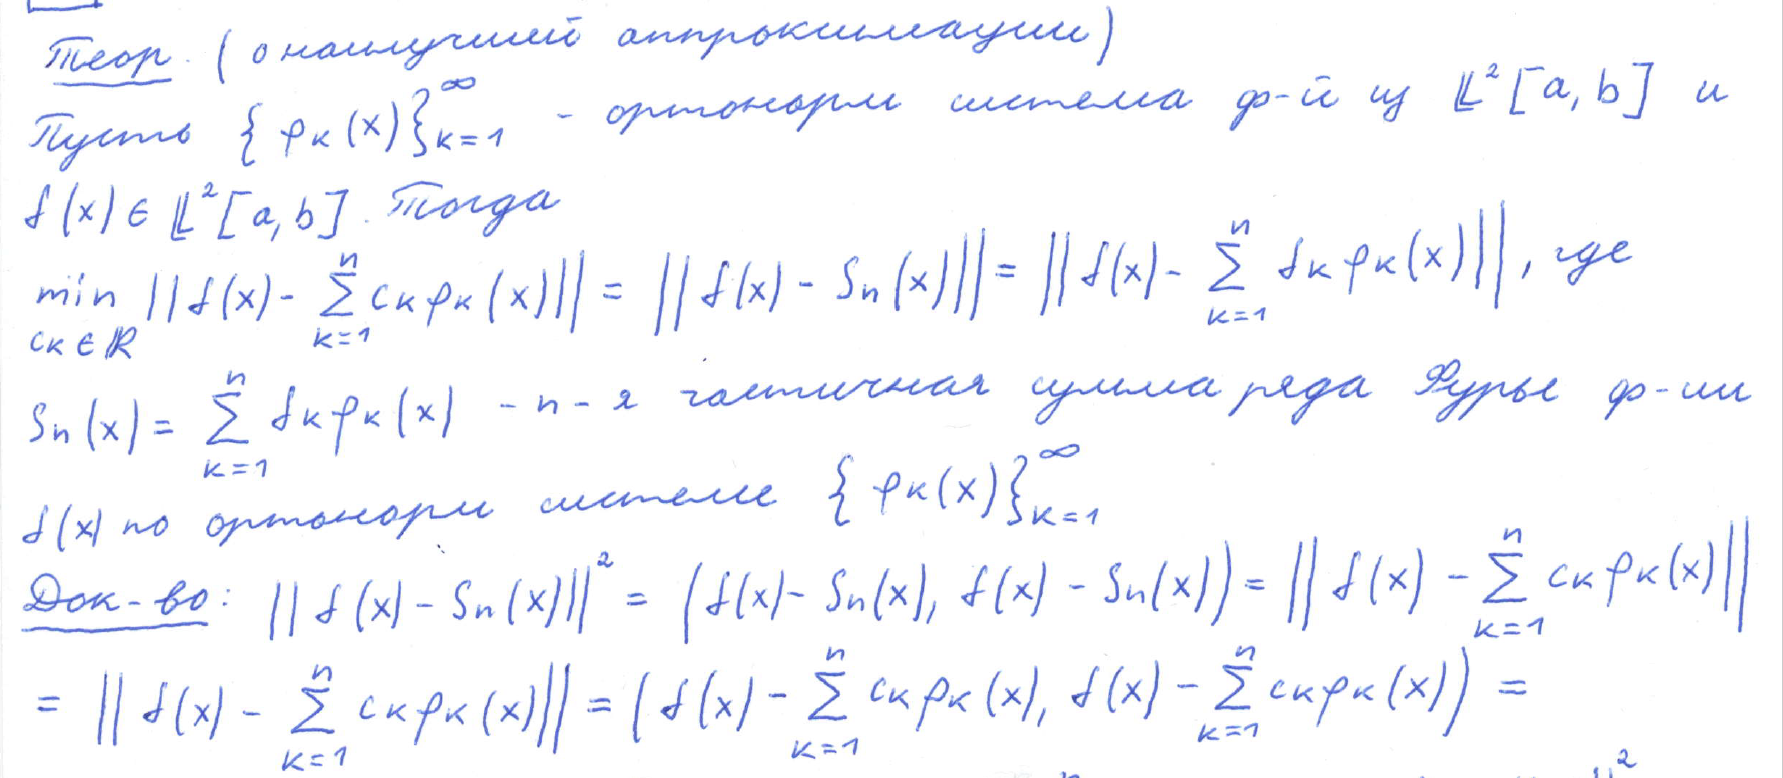 Теор. (о наилучшей аппроксимации)
Пусть {φ_k(x)}_{k=1}^∞ - ортонорм система ф-й из 𝕃²[a,b] и
f(x) ∈ 𝕃²[a,b]. Тогда
min_{c_k∈ℝ} ||f(x) - ∑_{k=1}^n c_k φ_k(x)|| = ||f(x) - S_n(x)|| = ||f(x) - ∑_{k=1}^n f_k φ_k(x)||, где
S_n(x) = ∑_{k=1}^n f_k φ_k(x) - n-я частичная сумма ряда Фурье ф-ии
f(x) по ортонорм системе {φ_k(x)}_{k=1}^∞
Док-во: ||f(x) - S_n(x)||² = (f(x) - S_n(x), f(x) - S_n(x)) = ||f(x) - ∑_{k=1}^n c_k φ_k(x)||
= ||f(x) - ∑_{k=1}^n c_k φ_k(x)|| = (f(x) - ∑_{k=1}^n c_k φ_k(x), f(x) - ∑_{k=1}^n c_k φ_k(x)) =